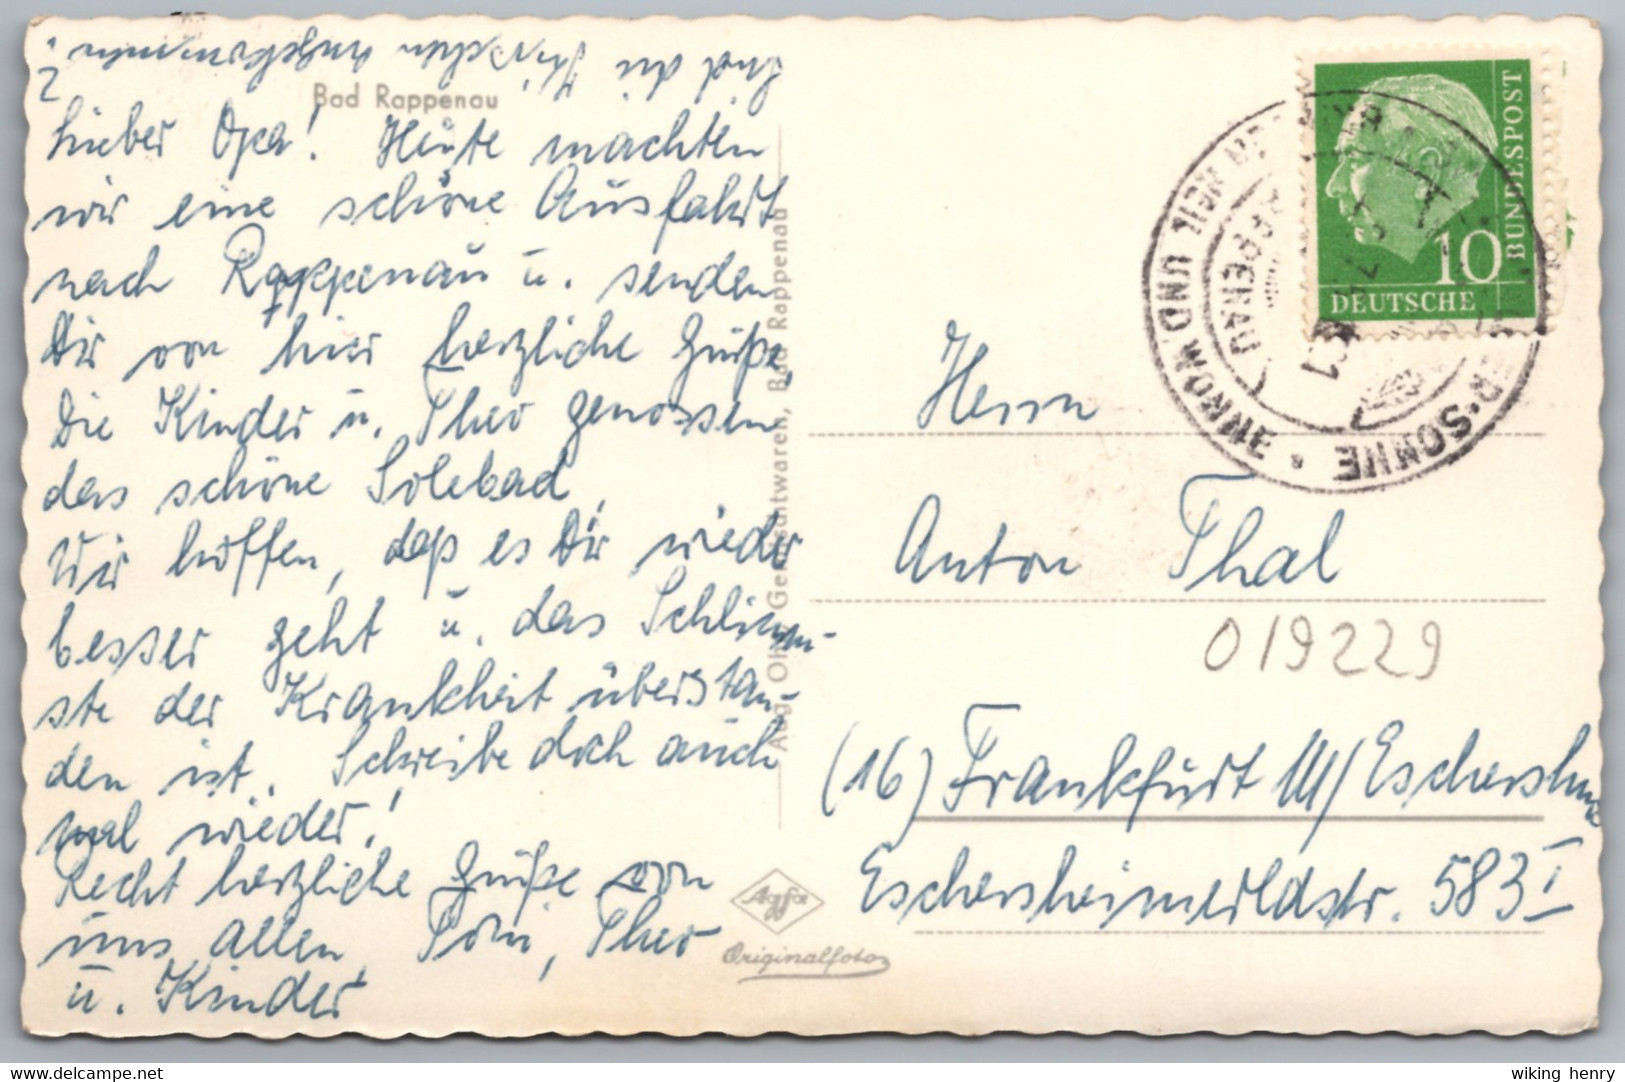 Sind die Kirschen angekommen?
Bad Rappenau
Lieber Opa! Heute machten
wir eine schöne Ausfahrt
nach Rappenau u. senden
Dir von hier herzliche Grüße,
Die Kinder u. Theo genossen
das schöne Solebad,
Wir hoffen, daß es Dir wieder
besser geht u. das Schlimm-
ste der Krankheit überstan-
den ist. Schreibe doch auch
mal wieder!
Recht herzliche Grüße von
uns allen, Toni, Theo
u. Kinder
Bad Rappenau
Agfa
Originalfoto
DEUTSCHE
BUNDESPOST
10
RAPPENAU
WONNE
SONNE
HEIL UND
Herrn
Anton Thal
019229
(16) Frankfurt M/Eschersheim
Eschersheimerldstr. 583 I
www.delcampe.net
wiking henry